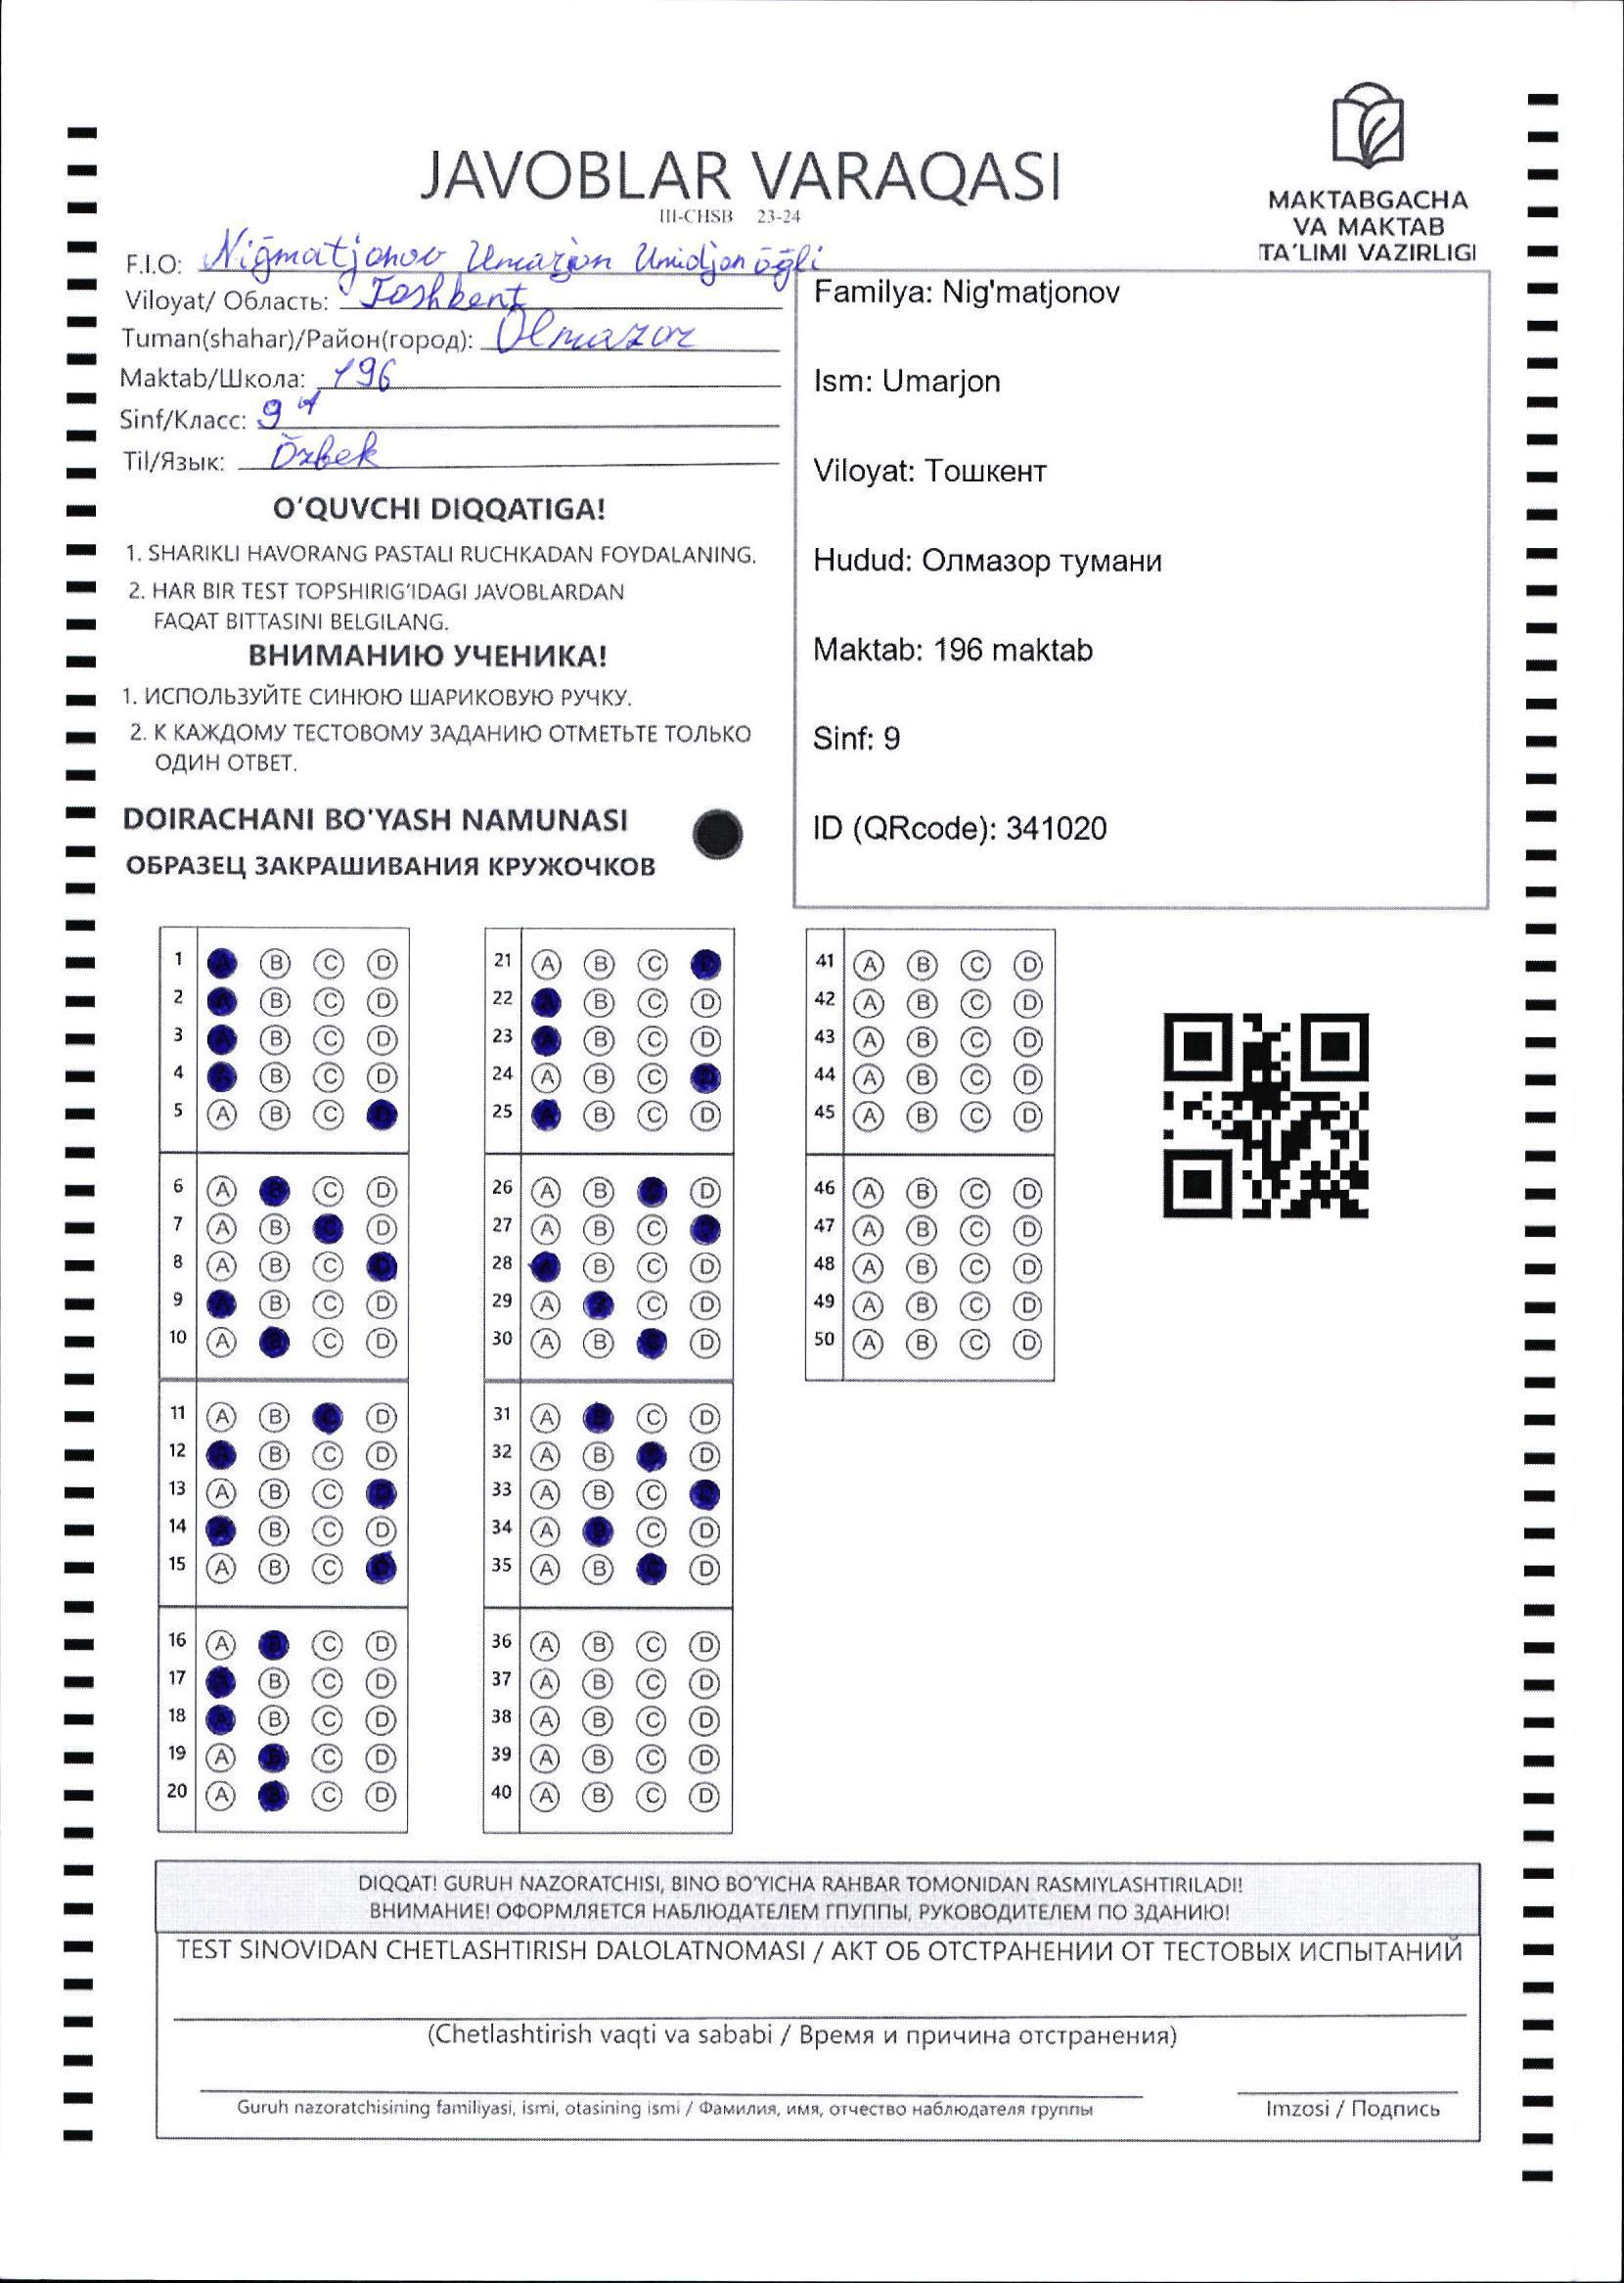 MAKTABGACHA
VA MAKTAB
TA'LIMI VAZIRLIGI
JAVOBLAR VARAQASI
III-CHSB 23-24
F.I.O: Niğmatjonov Umarjon Umidjon öğli
Viloyat/ Область: Toshkent
Tuman(shahar)/Район(город): Olmazor
Maktab/Школа: 196
Sinf/Класс: 9 "A"
Til/Язык: Özbek
Familya: Nig'matjonov
Ism: Umarjon
Viloyat: Тошкент
Hudud: Олмазор тумани
Maktab: 196 maktab
Sinf: 9
ID (QRcode): 341020
O'QUVCHI DIQQATIGA!
1. SHARIKLI HAVORANG PASTALI RUCHKADAN FOYDALANING.
2. HAR BIR TEST TOPSHIRIG'IDAGI JAVOBLARDAN
FAQAT BITTASINI BELGILANG.
ВНИМАНИЮ УЧЕНИКА!
1. ИСПОЛЬЗУЙТЕ СИНЮЮ ШАРИКОВУЮ РУЧКУ.
2. К КАЖДОМУ ТЕСТОВОМУ ЗАДАНИЮ ОТМЕТЬТЕ ТОЛЬКО
ОДИН ОТВЕТ.
DOIRACHANI BO'YASH NAMUNASI
ОБРАЗЕЦ ЗАКРАШИВАНИЯ КРУЖОЧКОВ
1 A B C D
2 A B C D
3 A B C D
4 A B C D
5 A B C D
6 A B C D
7 A B C D
8 A B C D
9 A B C D
10 A B C D
11 A B C D
12 A B C D
13 A B C D
14 A B C D
15 A B C D
16 A B C D
17 A B C D
18 A B C D
19 A B C D
20 A B C D
21 A B C D
22 A B C D
23 A B C D
24 A B C D
25 A B C D
26 A B C D
27 A B C D
28 A B C D
29 A B C D
30 A B C D
31 A B C D
32 A B C D
33 A B C D
34 A B C D
35 A B C D
36 A B C D
37 A B C D
38 A B C D
39 A B C D
40 A B C D
41 A B C D
42 A B C D
43 A B C D
44 A B C D
45 A B C D
46 A B C D
47 A B C D
48 A B C D
49 A B C D
50 A B C D
DIQQAT! GURUH NAZORATCHISI, BINO BO'YICHA RAHBAR TOMONIDAN RASMIYLASHTIRILADI!
ВНИМАНИЕ! ОФОРМЛЯЕТСЯ НАБЛЮДАТЕЛЕМ ГПУППЫ, РУКОВОДИТЕЛЕМ ПО ЗДАНИЮ!
TEST SINOVIDAN CHETLASHTIRISH DALOLATNOMASI / АКТ ОБ ОТСТРАНЕНИИ ОТ ТЕСТОВЫХ ИСПЫТАНИЙ
(Chetlashtirish vaqti va sababi / Время и причина отстранения)
Guruh nazoratchisining familiyasi, ismi, otasining ismi / Фамилия, имя, отчество наблюдателя группы
Imzosi / Подпись